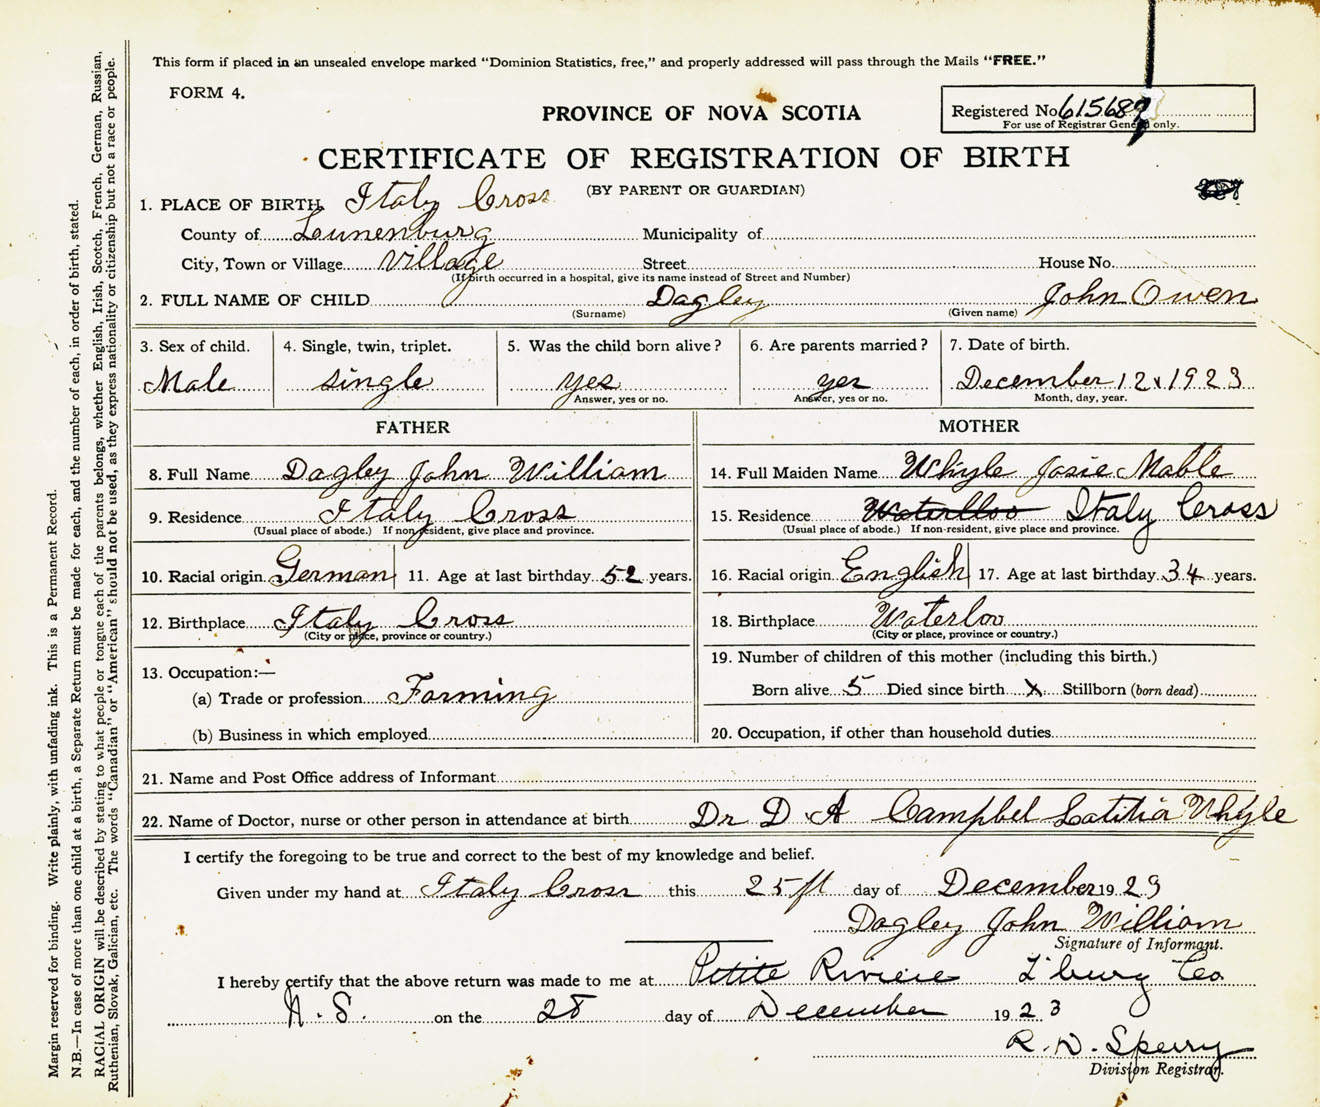 This form if placed in an unsealed envelope marked "Dominion Statistics, free," and properly addressed will pass through the Mails "FREE."
FORM 4.
PROVINCE OF NOVA SCOTIA
Registered No 615689
For use of Registrar General only.
CERTIFICATE OF REGISTRATION OF BIRTH
(BY PARENT OR GUARDIAN)
1. PLACE OF BIRTH Italy Cross
County of Lunenburg Municipality of
City, Town or Village village Street House No.
(If birth occurred in a hospital, give its name instead of Street and Number)
2. FULL NAME OF CHILD Dagley John Owen
(Surname) (Given name)
3. Sex of child. 4. Single, twin, triplet. 5. Was the child born alive? 6. Are parents married? 7. Date of birth.
Male single yes yes December 12 1923
Answer, yes or no. Answer, yes or no. Month, day, year.
FATHER MOTHER
8. Full Name Dagley John William 14. Full Maiden Name Whyle Josie Mable
9. Residence Italy Cross 15. Residence Waterloo Italy Cross
(Usual place of abode.) If non-resident, give place and province. (Usual place of abode.) If non-resident, give place and province.
10. Racial origin German 11. Age at last birthday 52 years. 16. Racial origin English 17. Age at last birthday 34 years.
12. Birthplace Italy Cross 18. Birthplace Waterloo
(City or place, province or country.) (City or place, province or country.)
13. Occupation:— 19. Number of children of this mother (including this birth.)
(a) Trade or profession Farming Born alive 5 Died since birth x Stillborn (born dead)
(b) Business in which employed 20. Occupation, if other than household duties
21. Name and Post Office address of Informant
22. Name of Doctor, nurse or other person in attendance at birth Dr D A Campbel Latitia Whyle
I certify the foregoing to be true and correct to the best of my knowledge and belief.
Given under my hand at Italy Cross this 25 day of December 1923
Dagley John William
Signature of Informant.
I hereby certify that the above return was made to me at Petite Riviere L'burg Co
N.S. on the 28 day of December 1923
R. D. Sperry
Division Registrar.
Margin reserved for binding. Write plainly, with unfading ink. This is a Permanent Record.
N.B.—In case of more than one child at a birth, a Separate Return must be made for each, and the number of each, in order of birth, stated.
RACIAL ORIGIN will be described by stating to what people or tongue each of the parents belongs, whether English, Irish, Scotch, French, German, Russian,
Ruthenian, Slovak, Galician, etc. The words "Canadian" or "American" should not be used, as they express nationality or citizenship but not a race or people.